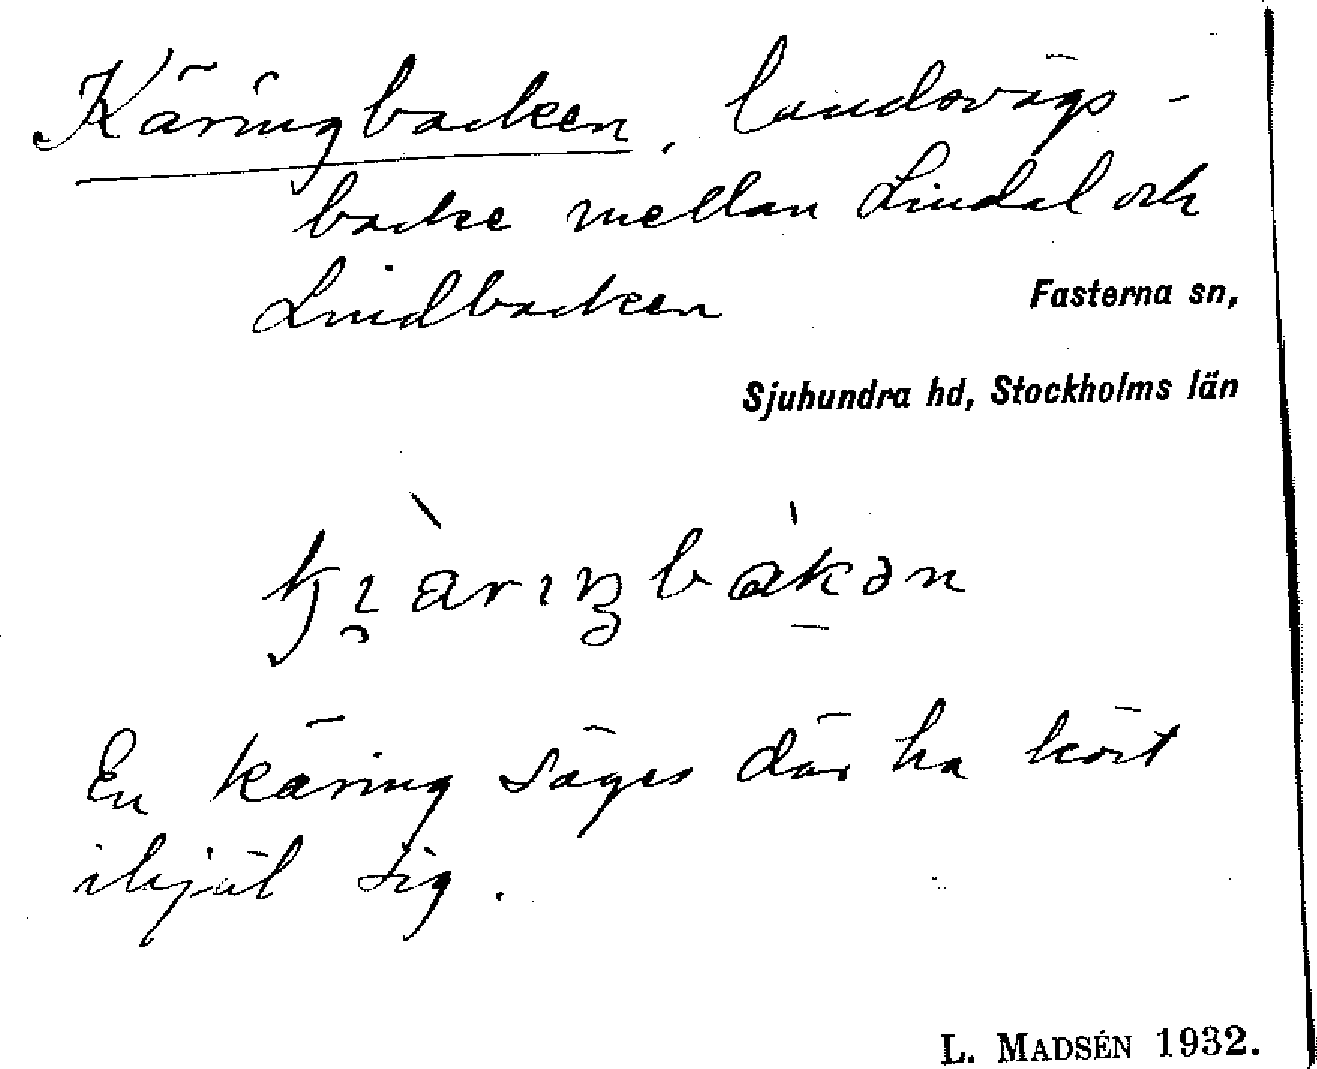 Käringbacken, landsvägs-
backe mellan Lindal och
Lindbacken
Fasterna sn,
Sjuhundra hd, Stockholms län
En käring säges där ha kört
ihjäl sig.
L. MADSÉN 1932.